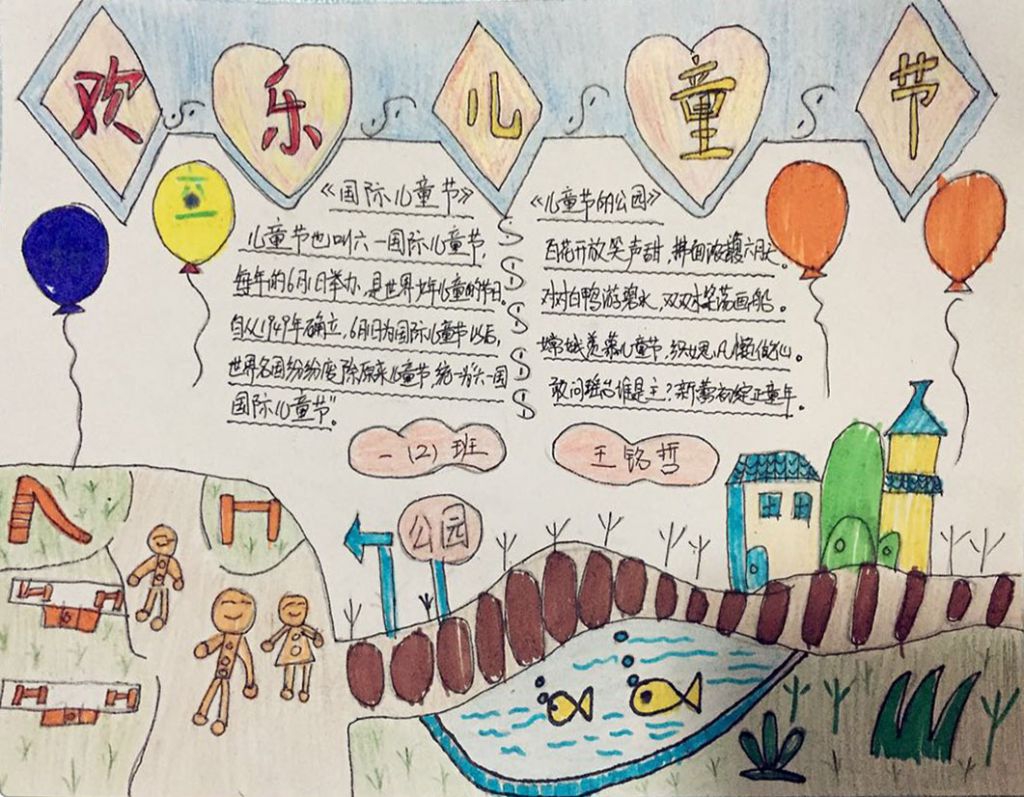 欢乐儿童节
《国际儿童节》
儿童节也叫六一国际儿童节,
每年的6月1日举办,是世界少年儿童的节日。
自从1949年确立,6月1日为国际儿童节以后,
世界各国纷纷废除原来儿童节,统一为"六一国
国际儿童节"。
《儿童节的公园》
百花开放笑声甜,拂面浓馥六月天。
对对白鸭游碧水,双双木桨荡画船。
嫦娥羡慕儿童节,织女思凡懒做仙。
敢问谁是主?新蕾初绽正童年。
一(2)班
王铭哲
公园
六